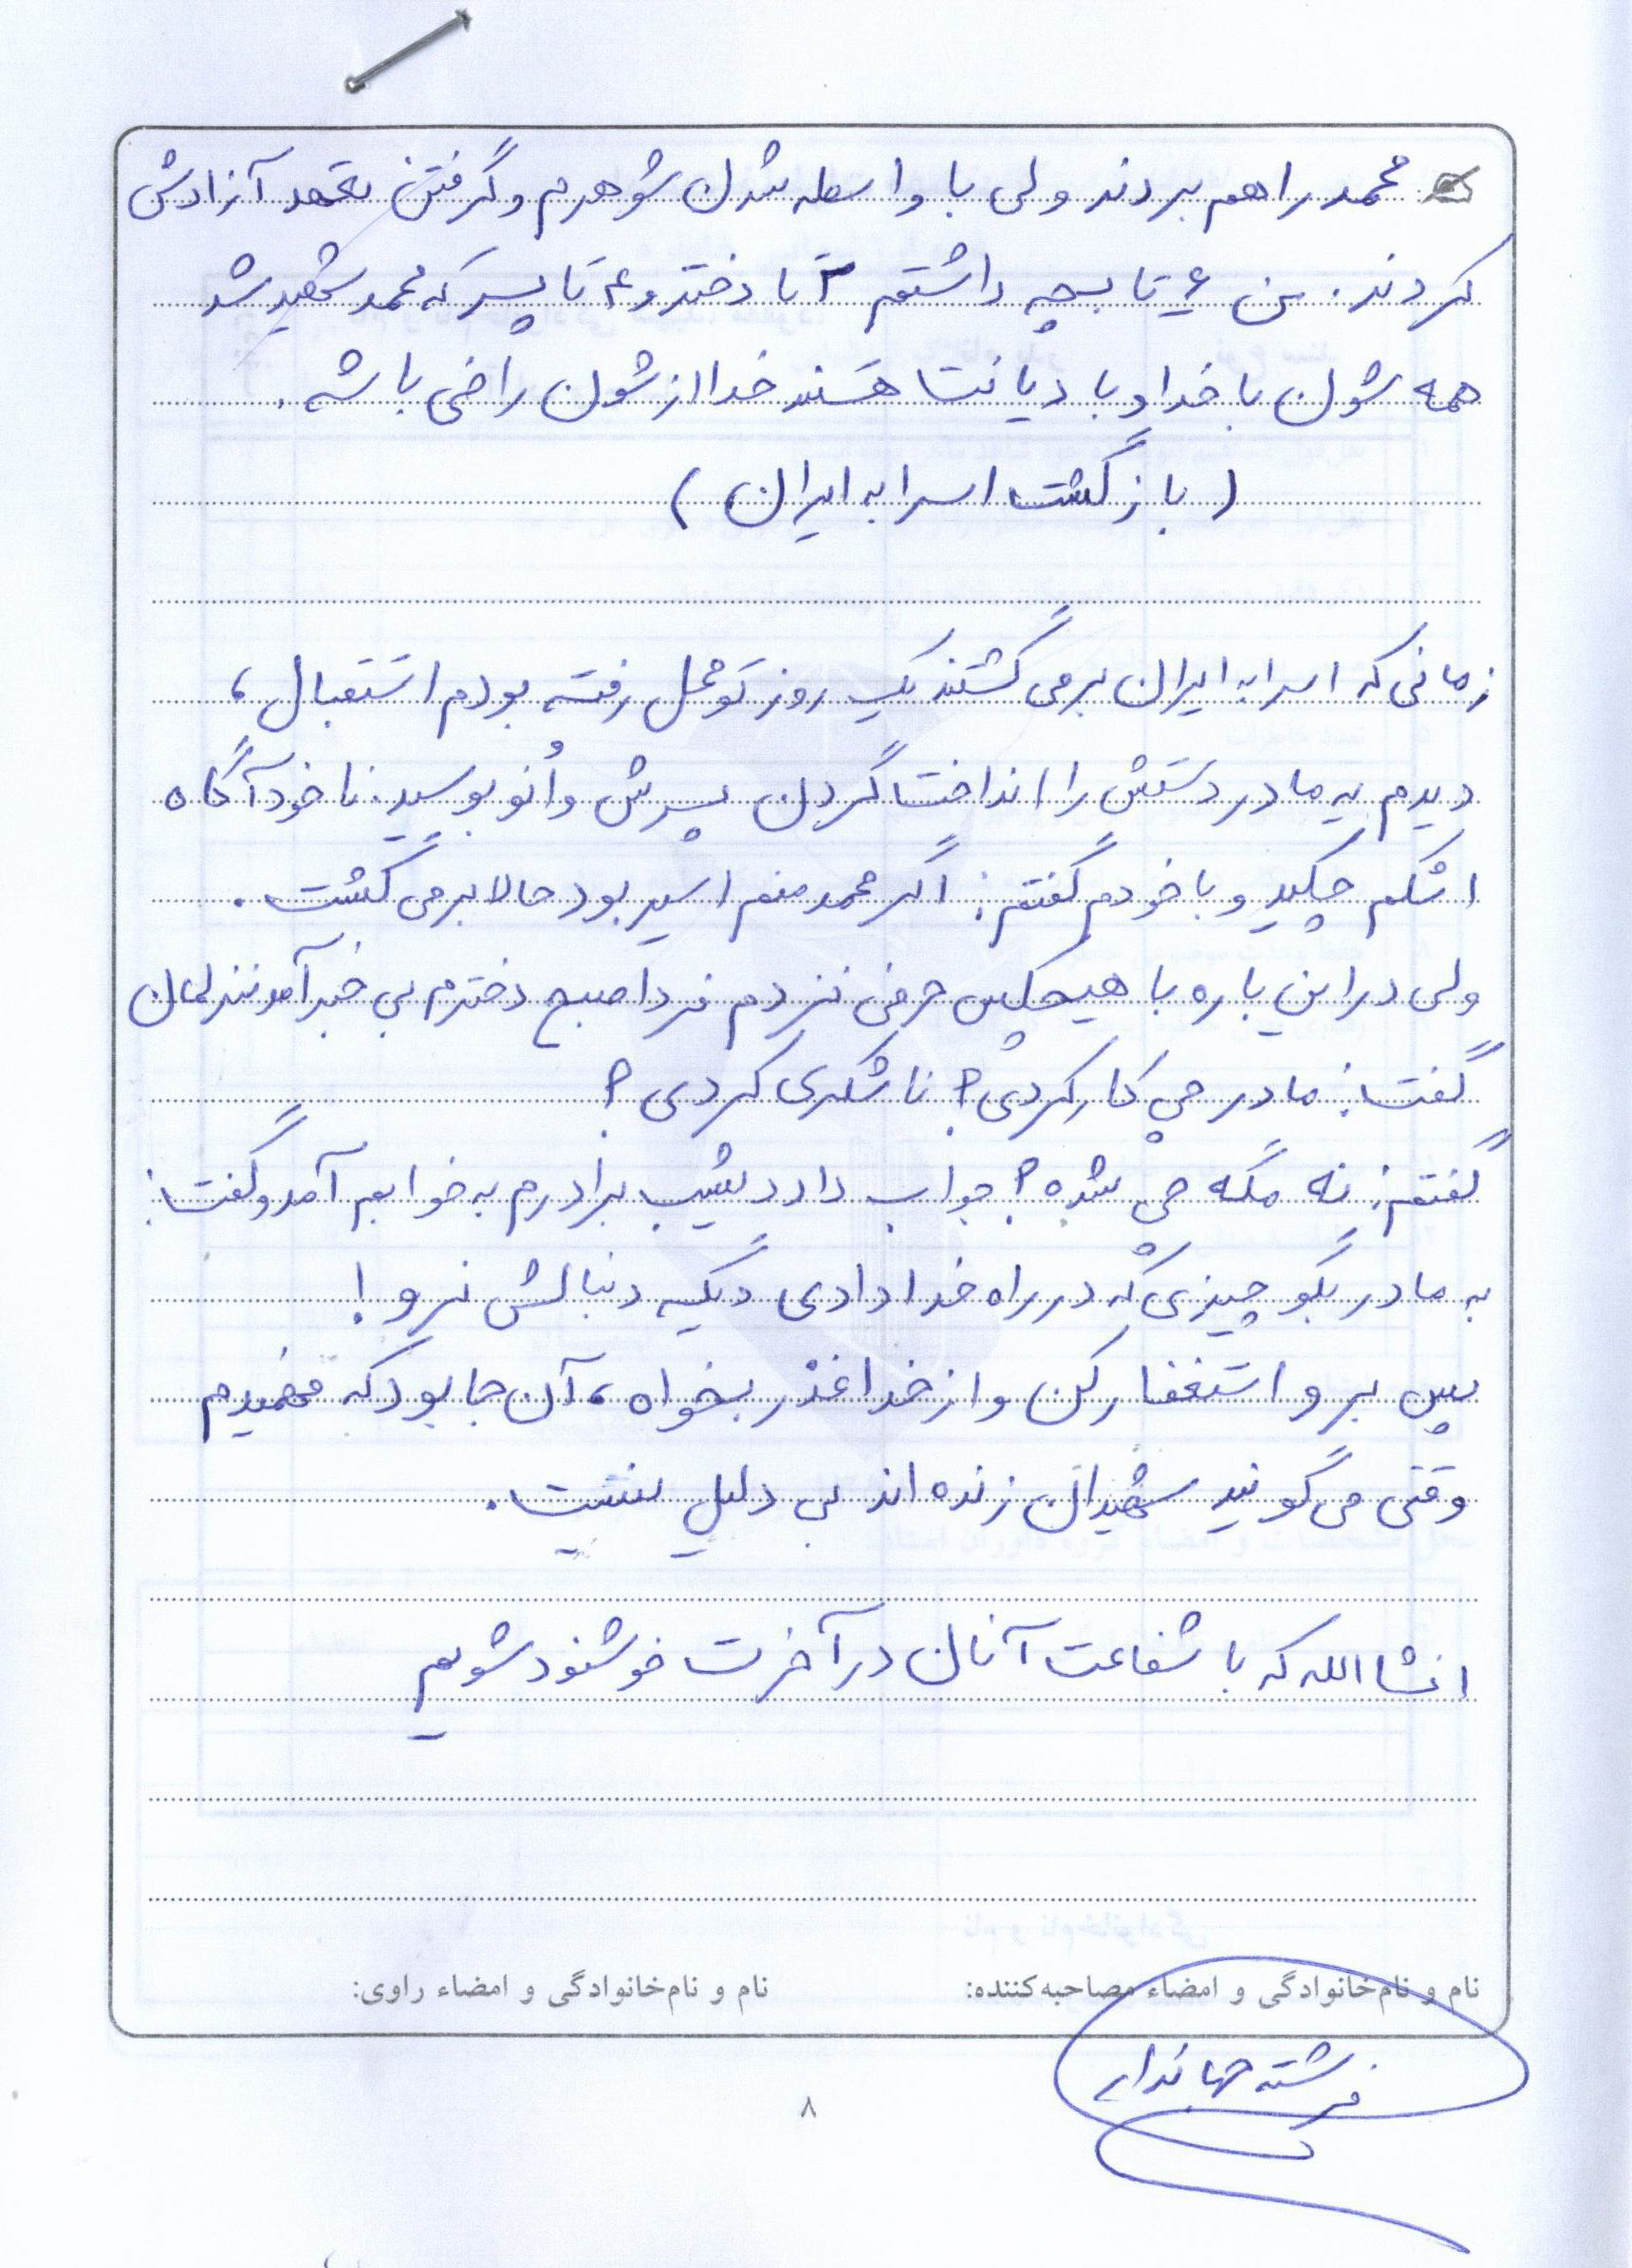 محمد را هم بردند ولی با واسطه شدن شوهرم و گرفتن تعهد آزادش
کردند. من ۶ تا بچه داشتم ۲ تا دختر و ۴ تا پسر که محمد شهید شد
همه شون با خدا و با دیانت هستند خدا ازشون راضی باشه.
( بازگشت اسرا به ایران )
زمانی که اسرا به ایران برمی گشتند یک روز تو محل رفته بودم استقبال ،
دیدم یه مادر دستش را انداخت گردن پسرش و اُنو بوسید. ناخودآگاه
اشکم چکید و با خودم گفتم: اگر محمد منم اسیر بود حالا برمی گشت.
ولی در این باره با هیچکس حرفی نزدم فردا صبح دخترم بی خبر آمد منزلمان
گفت: مادر چی کار کردی؟ ناشکری کردی؟
گفتم: نه مگه چی شده؟ جواب داد دیشب برادرم به خوابم آمد و گفت:
به مادر بگو چیزی که در راه خدا دادی دیگه دنبالش نرو!
پس برو استغفار کن و از خدا عذر بخواه ، آن جا بود که فهمیدم
وقتی می گویند شهیدان زنده اند بی دلیل نیست.
انشاالله که با شفاعت آنان در آخرت خوشنود شویم
نام و نام‌خانوادگی و امضاء مصاحبه‌کننده: نام و نام‌خانوادگی و امضاء راوی:
فرشته جهاندار
۸